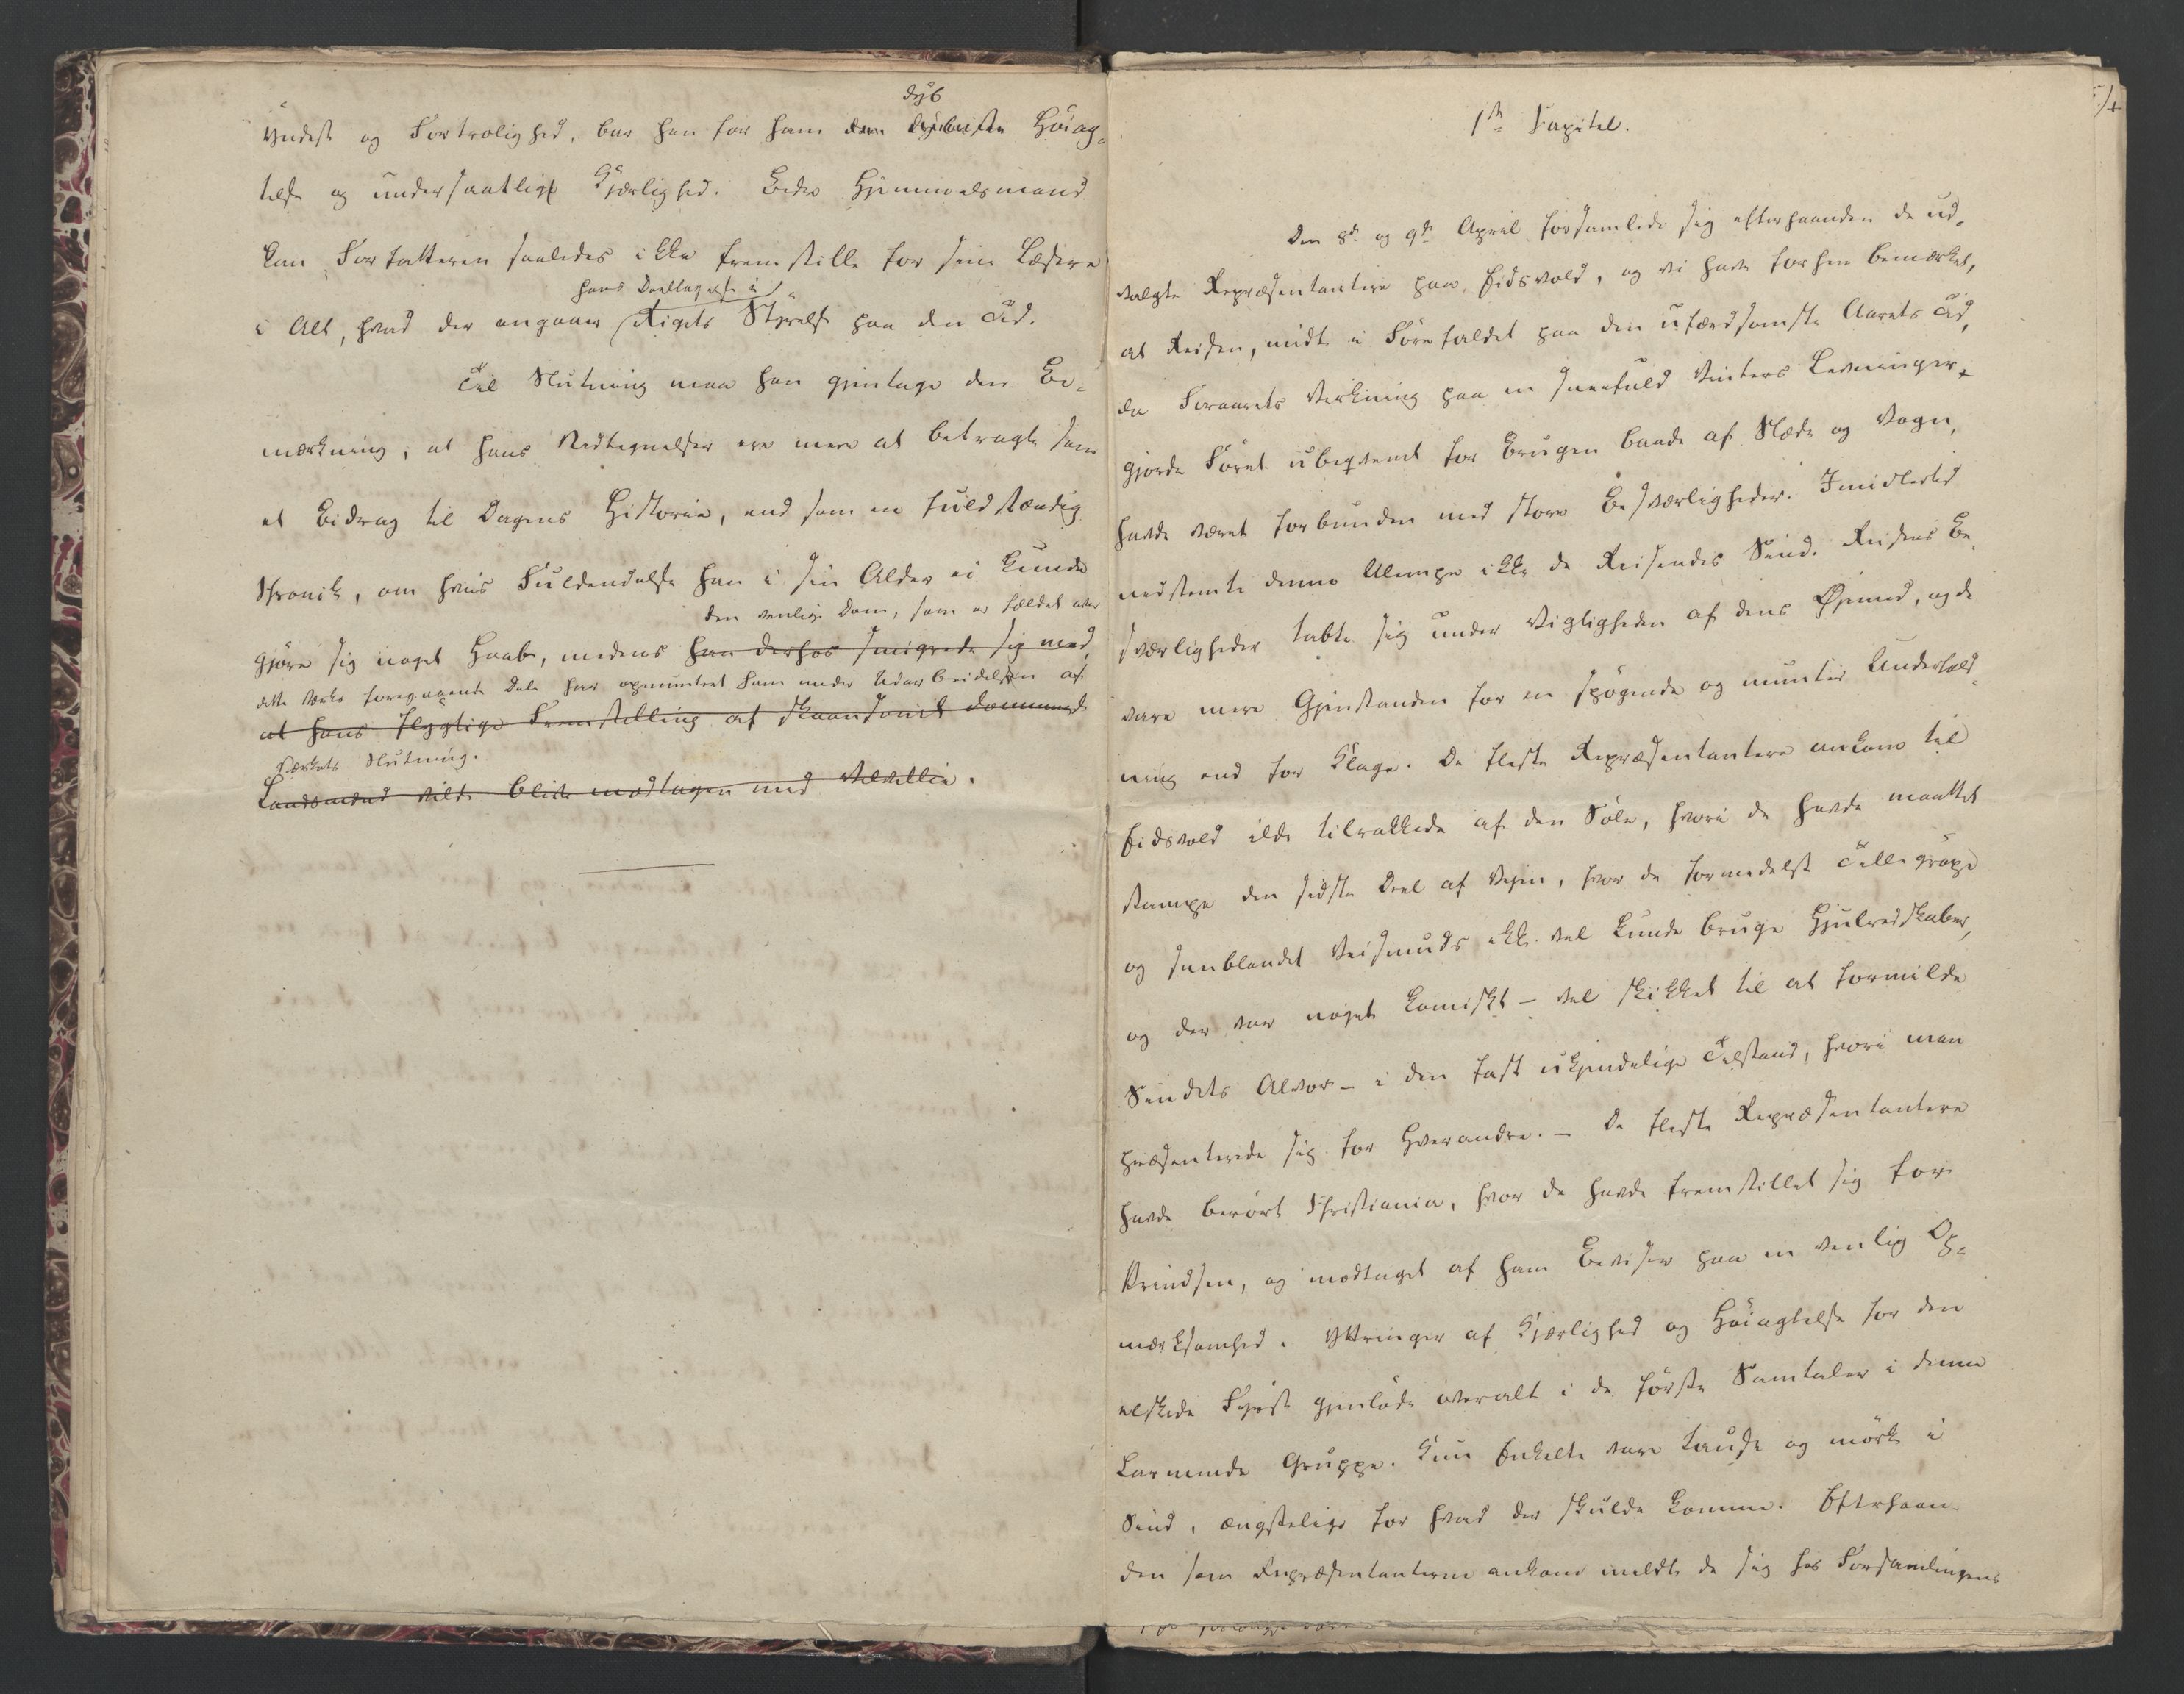 Yndest og Fortrolighed, bar han for ham den dybeste dyb Höiag-
telse og undersaatlige Kjærlighed. Bedre Hjemmelsmand
kan Forfatteren saaledes ikke fremstille for sine Læsere
i Alt, hvad der angaaer hans Deeltagelse i Rigets Styrelse paa den Tid.
Til Slutning maa han gjentage den Be-
mærkning, at hans Optegnelser ere mere at betragte som
et Bidrag til Dagens Historie, end som en fuldstændig
Chronik, om hvis Fuldendelse han i sin Alder ei kunde
den venlige Dom, som er fældet over
gjøre sig noget Haab, medens han derhos smigrede sig med,
dette Værks foregaaende Dele har opmuntret ham under Udarbeidelsen af
at hans flygtige Fremstilling af skaansomt dømmende
Værkets Slutning.
Landsmænd vilde blive modtagen med Velvillie.
1ste Capitel.
Den 8de og 9de April forsamlede sig efterhaanden de ud-
valgte Repræsentantere paa Eidsvold, og vi have forhen bemærket,
at Reisen, midt i Förefaldet paa den ufærdsomste Aarets Tid,
da Foraarets Virkning paa en sneefuld Vinters Levninger
gjorde Föret ubeqvemt for Brugen baade af Slæde og Vogn,
havde været forbunden med store Besværligheder. Imidlertid
nedstemte denne Ulempe ikke de Reisendes Sind. Reisens Be-
sværligheder tabte sig under Vigtigheden af dens Øjemed, og de
vare mere Gjenstanden for en spögende og munter Underhold-
ning end for Klage. De fleste Repræsentantere ankom til
Eidsvold ilde tilrakkede af den Söle, hvori de havde maattet
stampe den sidste Deel af Vejen, hvor de formedelst Tellegröpe
og sneeblandet Veismuds ikke vel kunde bruge Hjulredskaber,
og der var noget Komiskt – vel skikket til at formilde
Sindets Alvor – i den fast ukjendelige Tilstand, hvori man
præsenterede sig for Hverandre. – De fleste Repræsentantere
havde berört Christiania, hvor de havde fremstillet sig for
Prindsen, og modtaget af ham Beviser paa en venlig Op-
mærksomhed. Yttringer af Kjærlighed og Höiagtelse for den
elskede Fyrste gjenlöde overalt i de förste Samtaler i denne
larmende Gruppe. Kun Enkelte vare tause og mörke i
Sind, ængstelige for hvad der skulde komme. Efterhaan-
den som Repræsentanterne ankom meldte de sig hos Forsamlingens